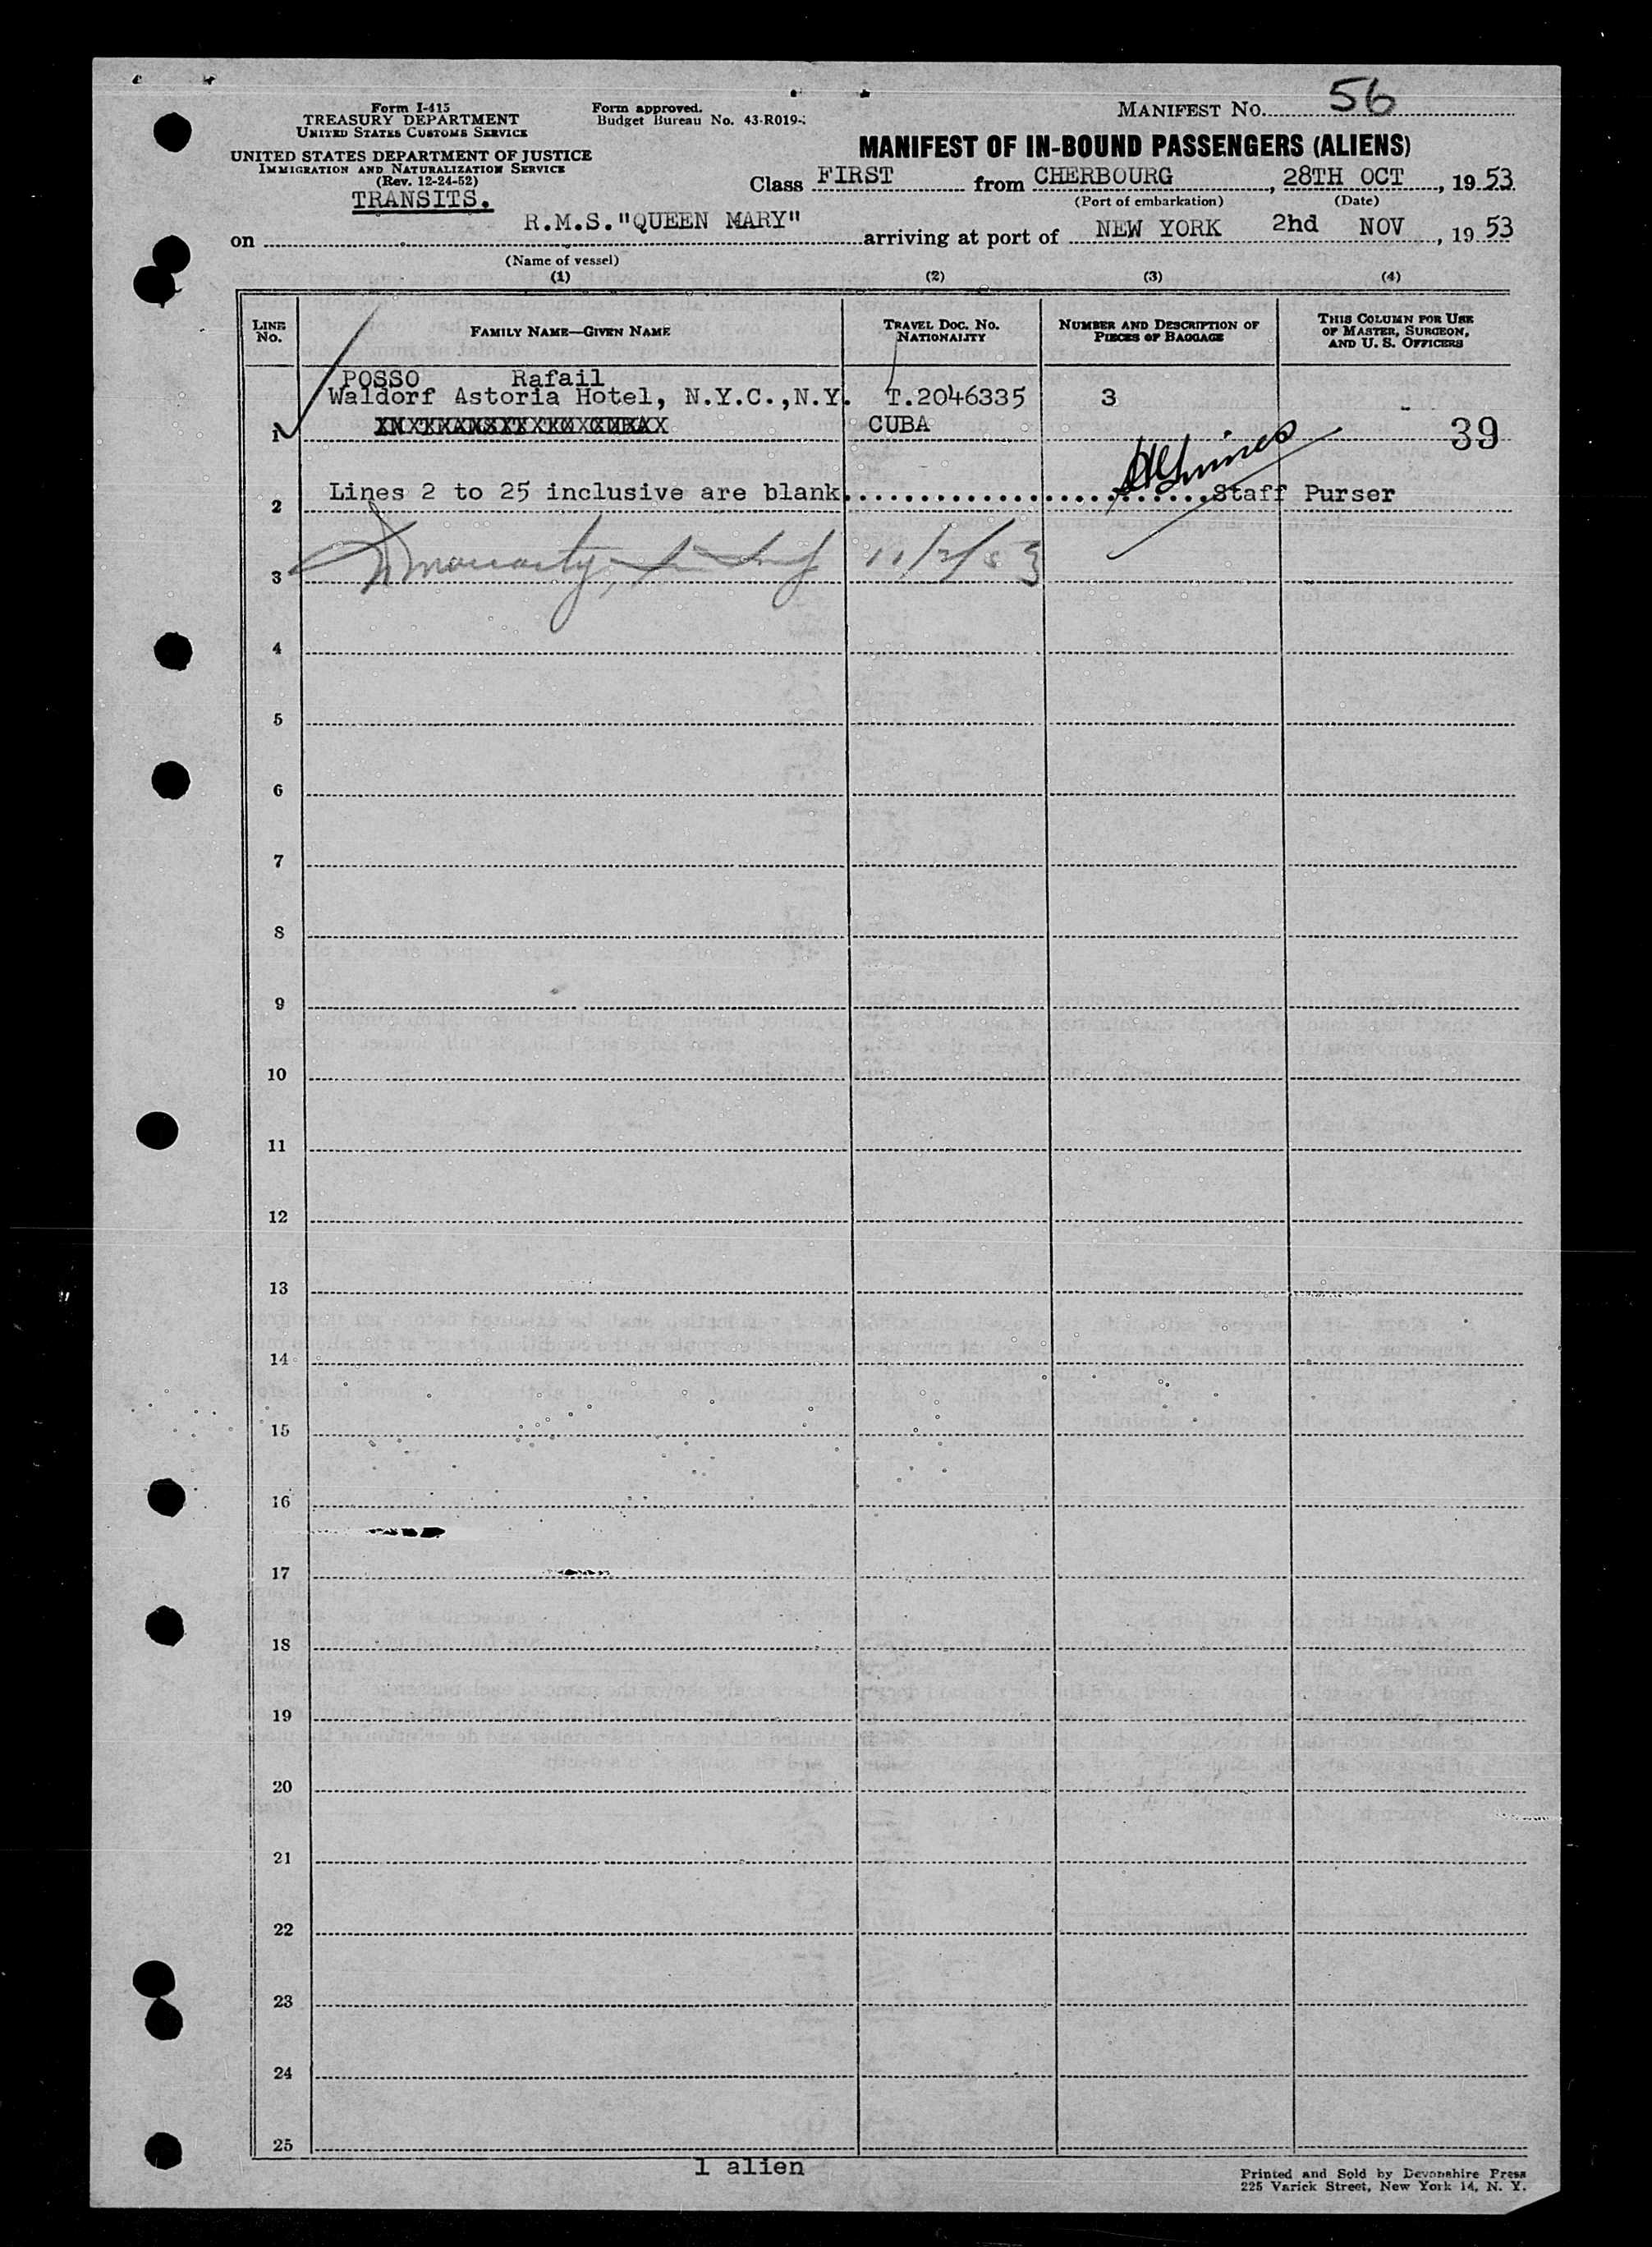 Form I-415
TREASURY DEPARTMENT
UNITED STATES CUSTOMS SERVICE
UNITED STATES DEPARTMENT OF JUSTICE
IMMIGRATION AND NATURALIZATION SERVICE
(Rev. 12-24-52)
TRANSITS.
Form approved.
Budget Bureau No. 43-R019-
MANIFEST NO. 56
MANIFEST OF IN-BOUND PASSENGERS (ALIENS)
Class FIRST from CHERBOURG, 28TH OCT, 1953
(Port of embarkation) (Date)
on R.M.S."QUEEN MARY" arriving at port of NEW YORK 2hd NOV, 1953
(Name of vessel)
(1) (2) (3) (4)
LINE NO.
FAMILY NAME—GIVEN NAME
TRAVEL DOC. NO. NATIONALITY
NUMBER AND DESCRIPTION OF PIECES OF BAGGAGE
THIS COLUMN FOR USE OF MASTER, SURGEON, AND U. S. OFFICERS
POSSO Rafail
Waldorf Astoria Hotel, N.Y.C.,N.Y. T.2046335 3
1 IN TRANSIT TO CUBA CUBA 39
2 Lines 2 to 25 inclusive are blank........................Staff Purser
3 11/2/53
4
5
6
7
8
9
10
11
12
13
14
15
16
17
18
19
20
21
22
23
24
25
1 alien
Printed and Sold by Devonshire Press
225 Varick Street, New York 14, N. Y.